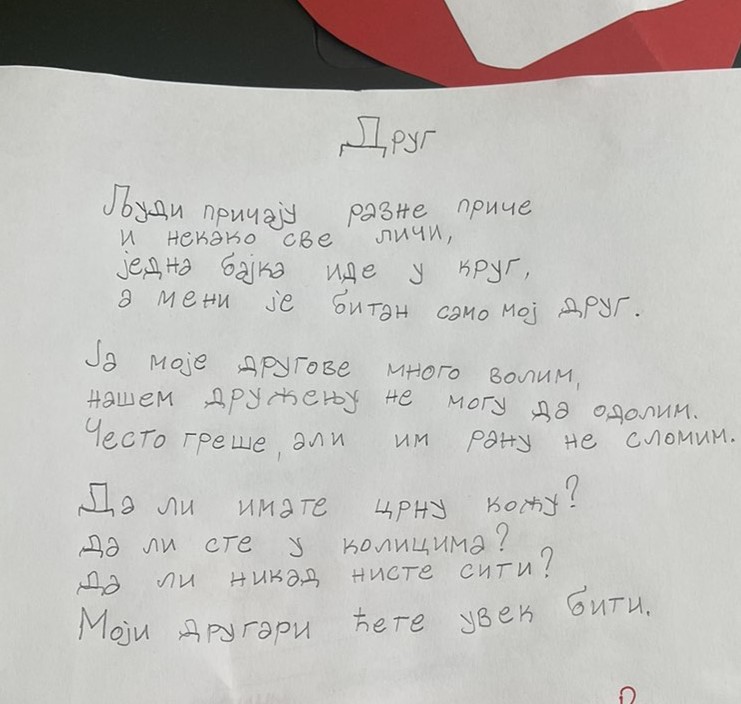 Друг
Људи причају разне приче
и некако све личи,
једна бајка иде у круг,
а мени је битан само мој друг.
Ја моје другове много волим,
нашем дружењу не могу да одолим.
Често греше, али им рану не сломим.
Да ли имате црну кожу?
Да ли сте у колицима?
Да ли никад нисте сити?
Моји другари ћете увек бити.